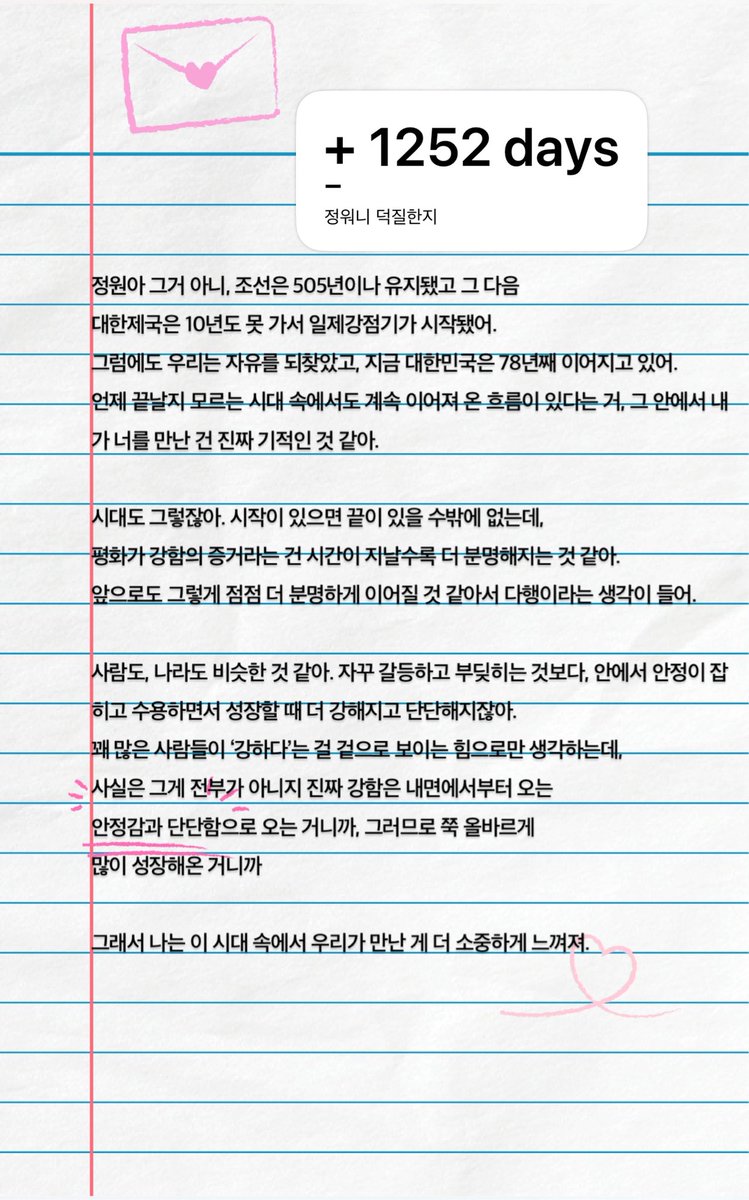 + 1252 days
–
정워니 덕질한지
정원아 그거 아니, 조선은 505년이나 유지됐고 그 다음
대한제국은 10년도 못 가서 일제강점기가 시작됐어.
그럼에도 우리는 자유를 되찾았고, 지금 대한민국은 78년째 이어지고 있어.
언제 끝날지 모르는 시대 속에서도 계속 이어져 온 흐름이 있다는 거, 그 안에서 내
가 너를 만난 건 진짜 기적인 것 같아.
시대도 그렇잖아. 시작이 있으면 끝이 있을 수밖에 없는데,
평화가 강함의 증거라는 건 시간이 지날수록 더 분명해지는 것 같아.
앞으로도 그렇게 점점 더 분명하게 이어질 것 같아서 다행이라는 생각이 들어.
사람도, 나라도 비슷한 것 같아. 자꾸 갈등하고 부딪히는 것보다, 안에서 안정이 잡
히고 수용하면서 성장할 때 더 강해지고 단단해지잖아.
꽤 많은 사람들이 ‘강하다’는 걸 겉으로 보이는 힘으로만 생각하는데,
사실은 그게 전부가 아니지 진짜 강함은 내면에서부터 오는
안정감과 단단함으로 오는 거니까, 그러므로 쭉 올바르게
많이 성장해온 거니까
그래서 나는 이 시대 속에서 우리가 만난 게 더 소중하게 느껴져.